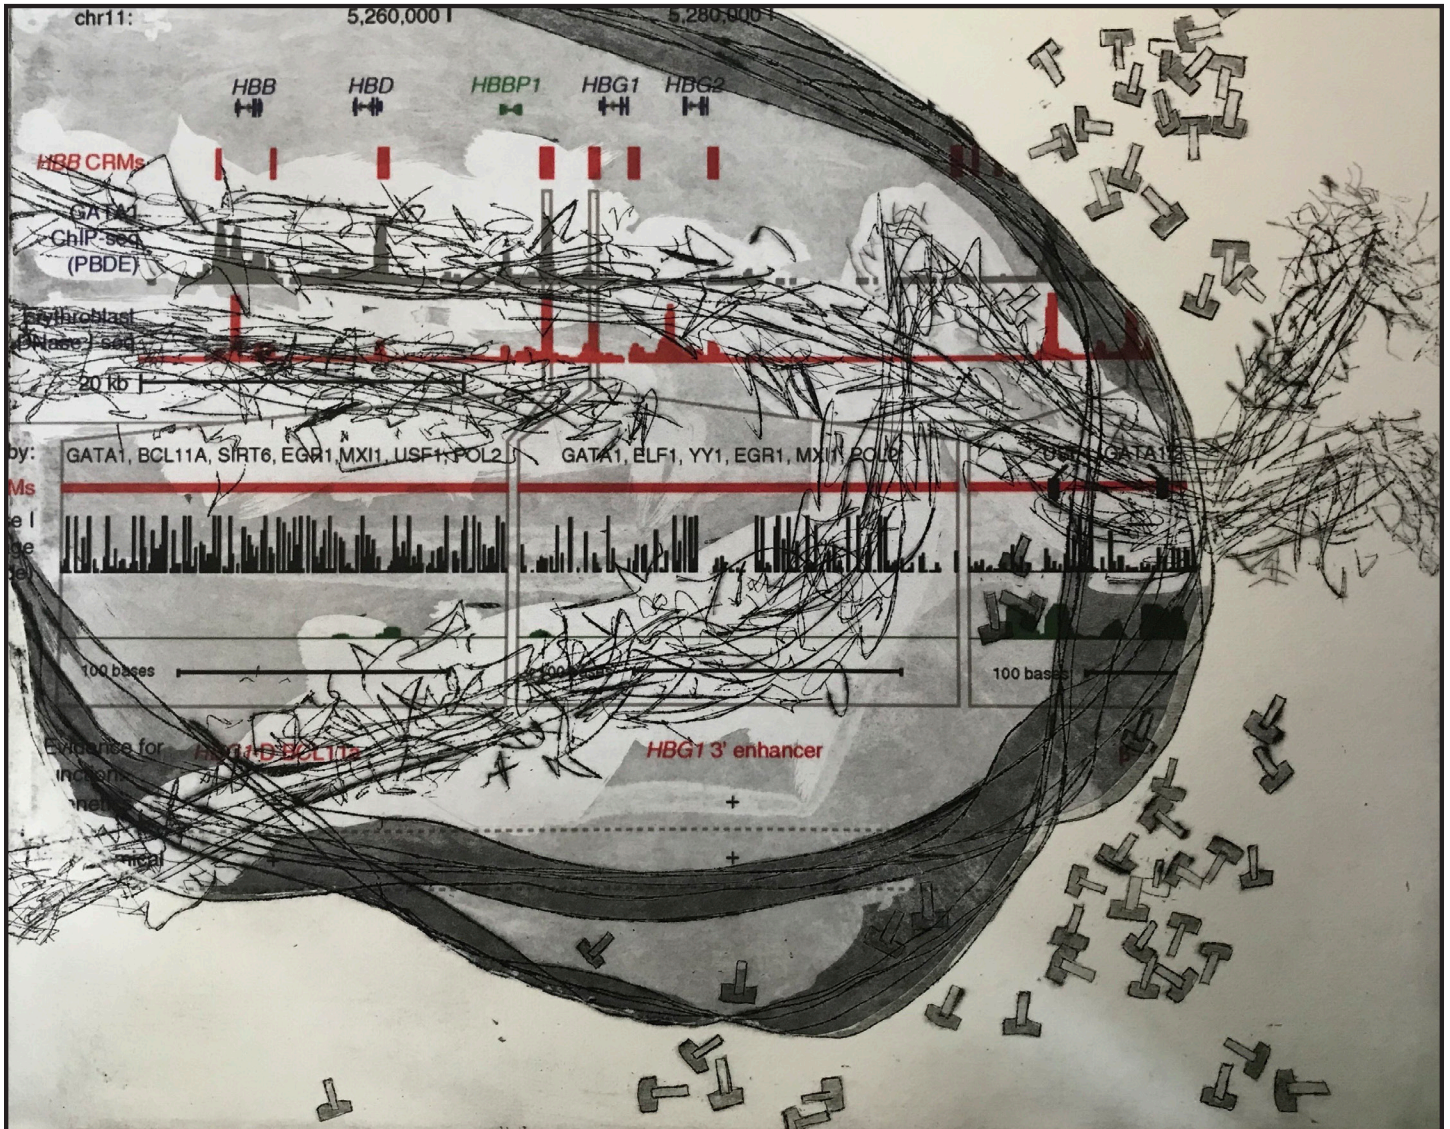 chr11: 5,260,000 5,280,000
HBB HBD HBBP1 HBG1 HBG2
HBB CRMs
GATA1
ChIP-seq
(PBDE)
Erythroblast
DNase I seq
20 kb
by: GATA1, BCL11A, SIRT6, EGR1, MXI1, USF1, POL2 GATA1, ELF1, YY1, EGR1, MXI1, POL2 GATA1
Ms
e I
ge
100 bases 100 bases 100 bases
Evidence for HBG1 3' enhancer
+
mical +